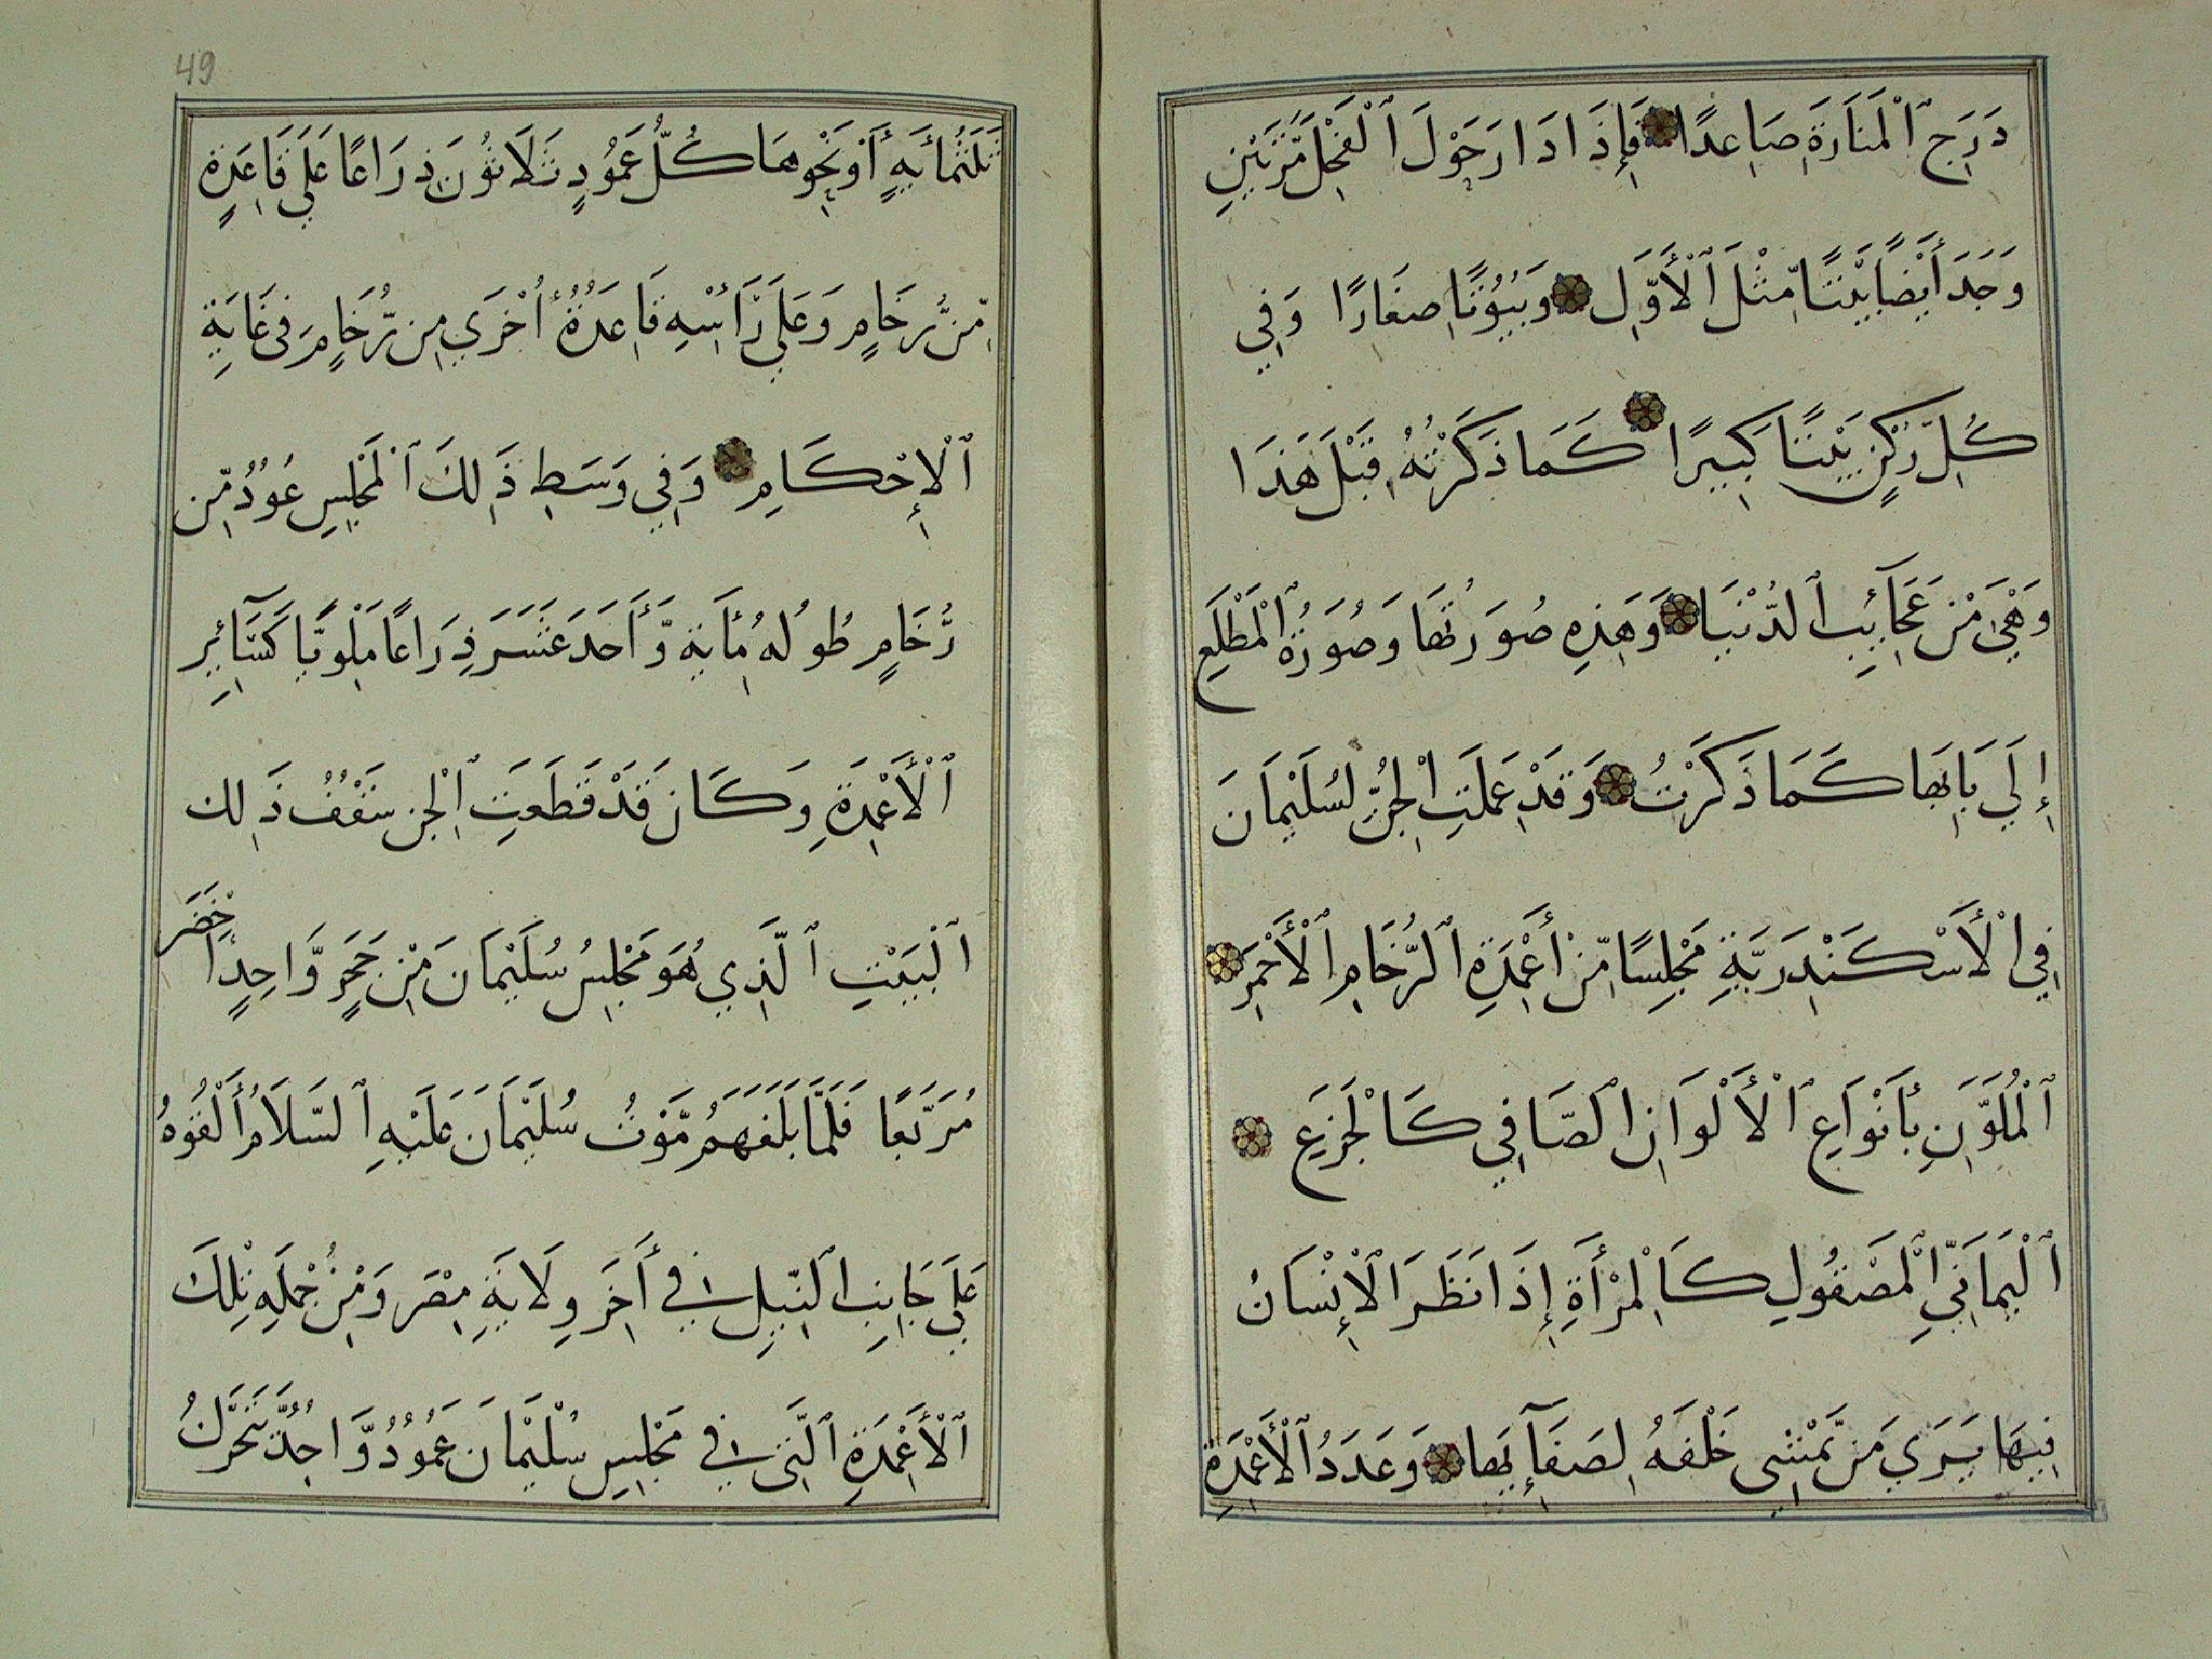 دَرَجِ ٱلْمَنَارَةِ صَاعِدًا فَإِذَا دَارَ حَوْلَ ٱلْفَحْلِ مَرَّتَيْنِ
وَجَدَ أَيْضًا بَيْتًا مِّثْلَ ٱلْأَوَّلِ وَبُيُوتًا صِغَارًا وَفِي
كُلِّ رُكْنٍ بَيْتًا كَبِيرًا كَمَا ذَكَرْتُهُ قَبْلَ هَذَا
وَهْيَ مِنْ عَجَآئِبِ ٱلدُّنْيَا وَهَذِهِ صُورَتُهَا وَصُورَةُ ٱلْمَطْلَعِ
إِلَي بَابِهَا كَمَا ذَكَرْتُ وَقَدْ عَمِلَتِ ٱلْجِنُّ لِسُلَيْمَانَ
فِي ٱلْأَسْكَنْدَرِيَّةِ مَجْلِسًا مِّنْ أَعْمِدَةِ ٱلرُّخَامِ ٱلْأَحْمَرِ
ٱلْمُلَوَّنِ بِأَنْوَاعِ ٱلْأَلْوَانِ ٱلصَّافِي كَالْجَزِعِ
ٱلْيَمَانِيِّ ٱلْمَصْقُولِ كَالْمِرْأَةِ إِذَا نَظَرَ ٱلْإِنْسَانُ
فِيهَا يَرَي مَن يَّمْشِي خَلْفَهُ لِصَفَآئِهَا وَعَدَدُ ٱلْأَعْمِدَةِ
49
ثَلَثُمِأَيَةٍ أَوْ نَحْوِهَا كُلُّ عَمُودٍ ثَلَاثُونَ ذِرَاعًا عَلَي قَاعِدَةٍ
مِّن رُّخَامٍ وَعَلَي رَأْسِهِ قَاعِدَةٌ أُخْرَي مِن رُّخَامٍ فِي غَايَةِ
ٱلْإِحْكَامِ وَفِي وَسَطِ ذَلِكَ ٱلْمَجْلِسِ عَمُودٌ مِّن
رُّخَامٍ طُولُهُ مِأَيَة وَّأَحَدَ عَشَرَ ذِرَاعًا مَلَوَّنًا كَسَآئِرِ
ٱلْأَعْمِدَةِ وَكَانَ قَدْ قَطَعَتِ ٱلْجِن سَقْفَ ذَلِك
ٱلْبَيْتِ ٱلَّذِي هُوَ مَجْلِسُ سُلَيْمَانَ مِنْ حَجَرٍ وَّاحِدٍ أَخْضَر
مُرَبَّعًا فَلَمَّا بَلَغَهُمْ مَّوْتُ سُلَيْمَانَ عَلَيْهِ ٱلسَّلَامُ أَلْقَوْهُ
عَلَي جَانِبِ ٱلنِّيلِ فِي أَخِرِ وِلَايَةِ مِصْرَ وَمِنْ جُمْلَةِ تِلْكَ
ٱلْأَعْمِدَةِ ٱلَّتِي فِي مَجْلِسِ سُلَيْمَانَ عَمُودٌ وَّاحِدٌ يَّتَحَرَّكُ